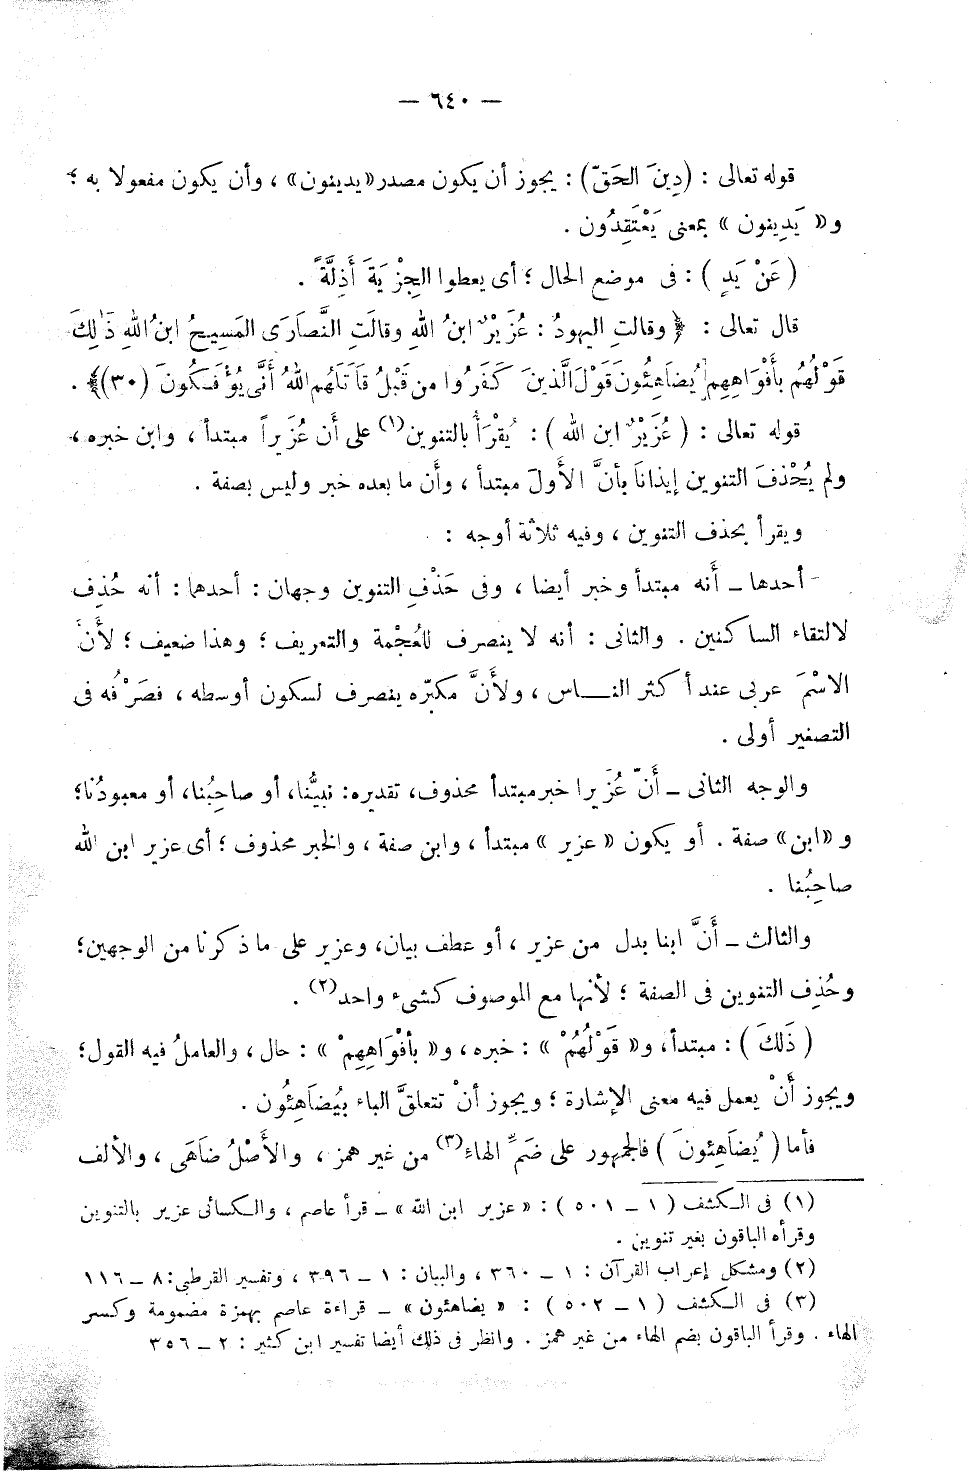 — ٦٤٠ —
قوله تعالى : (دِينَ الحَقّ) : يجوز أن يكون مصدر «يدينون» ، وأن يكون مفعولا به ؛
و« يَدِينون » بمعنى يَعْتَقِدُون .
( عَنْ يَدٍ ) : فى موضع الحال ؛ أى يعطوا الجِزْيَةَ أَذِلَّةً .
قال تعالى : ﴿ وقالتِ اليهودُ : عُزَيْرٌ ابنُ اللهِ وقالَتِ النَّصارَى المَسِيحُ ابنُ اللهِ ذٰلِكَ
قَوْلُهُم بأَفْوَاهِهِم يُضاهِئُونَ قَوْلَ الَّذينَ كَفَرُوا من قَبْلُ قَاتَلَهُم اللهُ أَنَّى يُؤْفَكُونَ (٣٠)﴾ .
قوله تعالى : ( عُزَيْرٌ ابن الله ) : يُقْرَأُ بالتنوين(١) على أن عُزَيراً مبتدأ ، وابن خبره ،
ولم يُحْذفَ التنوين إيذانَا بأنَّ الأَولَ مبتدأ ، وأن ما بعده خبر وليس بصفة .
ويقرأ بحذف التنوين ، وفيه ثلاثة أوجه :
أحدها ـ أَنه مبتدأ وخبر أيضا ، وفى حَذْفِ التنوين وجهان : أحدهما : أنه حُذِف
لالتقاء الساكنين . والثانى : أنه لا ينصرف للعُجْمة والتعريف ؛ وهذا ضعيف ؛ لأَنَّ
الاسْمَ عربى عند أكثر النـــاس ، ولأَنَّ مكبّره ينصرف لسكون أوسطه ، فصَرْفُه فى
التصغير أولى .
والوجه الثانى ـ أَنّ عُزَيرا خبر مبتدأ محذوف، تقديره: نبيُّنا، أو صاحِبُنا، أو معبودُنا؛
و «ابن» صفة . أو يكون « عزير » مبتدأ ، وابن صفة ، والخبر محذوف ؛ أى عزير ابن الله
صاحِبُنا .
والثالث ـ أَنَّ ابنا بدل من عزير ، أو عطف بيان، وعزير على ما ذكرنا من الوجهين؛
وحُذِف التنوين فى الصفة ؛ لأنها مع الموصوف كشىء واحد(٢) .
( ذَلكَ ) : مبتدأ، و« قَوْلُهُمْ » : خبره ، و« بأَفْوَاهِهِمْ » : حال ، والعاملُ فيه القول؛
ويجوز أَنْ يعمل فيه معنى الإشارة ؛ ويجوز أنْ تتعلقَّ الباء بيُضاهِئُون .
فأما ( يُضاهِئونَ ) فالجمهور على ضَمِّ الهاء(٣) من غير همز ، والأَصْلُ ضاهَى ، والألف
(١) فى الـكشف ( ١ ـ ٥٠١ ) : « عزير ابن الله » ـ قرأ عاصم ، والـكسائى عزير بالتنوين
وقرأه الباقون بغير تنوين .
(٢) ومشكل إعراب القرآن : ١ ـ ٣٦٠ ، والبيان : ١ ـ ٣٩٦ ، وتفسير القرطبى: ٨ ـ ١١٦
(٣) فى الـكشف ( ١ ـ ٥٠٢ ) : « يضاهئون » ـ قراءة عاصم بهمزة مضمومة وكسر
الهاء . وقرأ الباقون بضم الهاء من غير همز . وانظر فى ذلك أيضا تفسير ابن كثير : ٢ ـ ٣٥٦